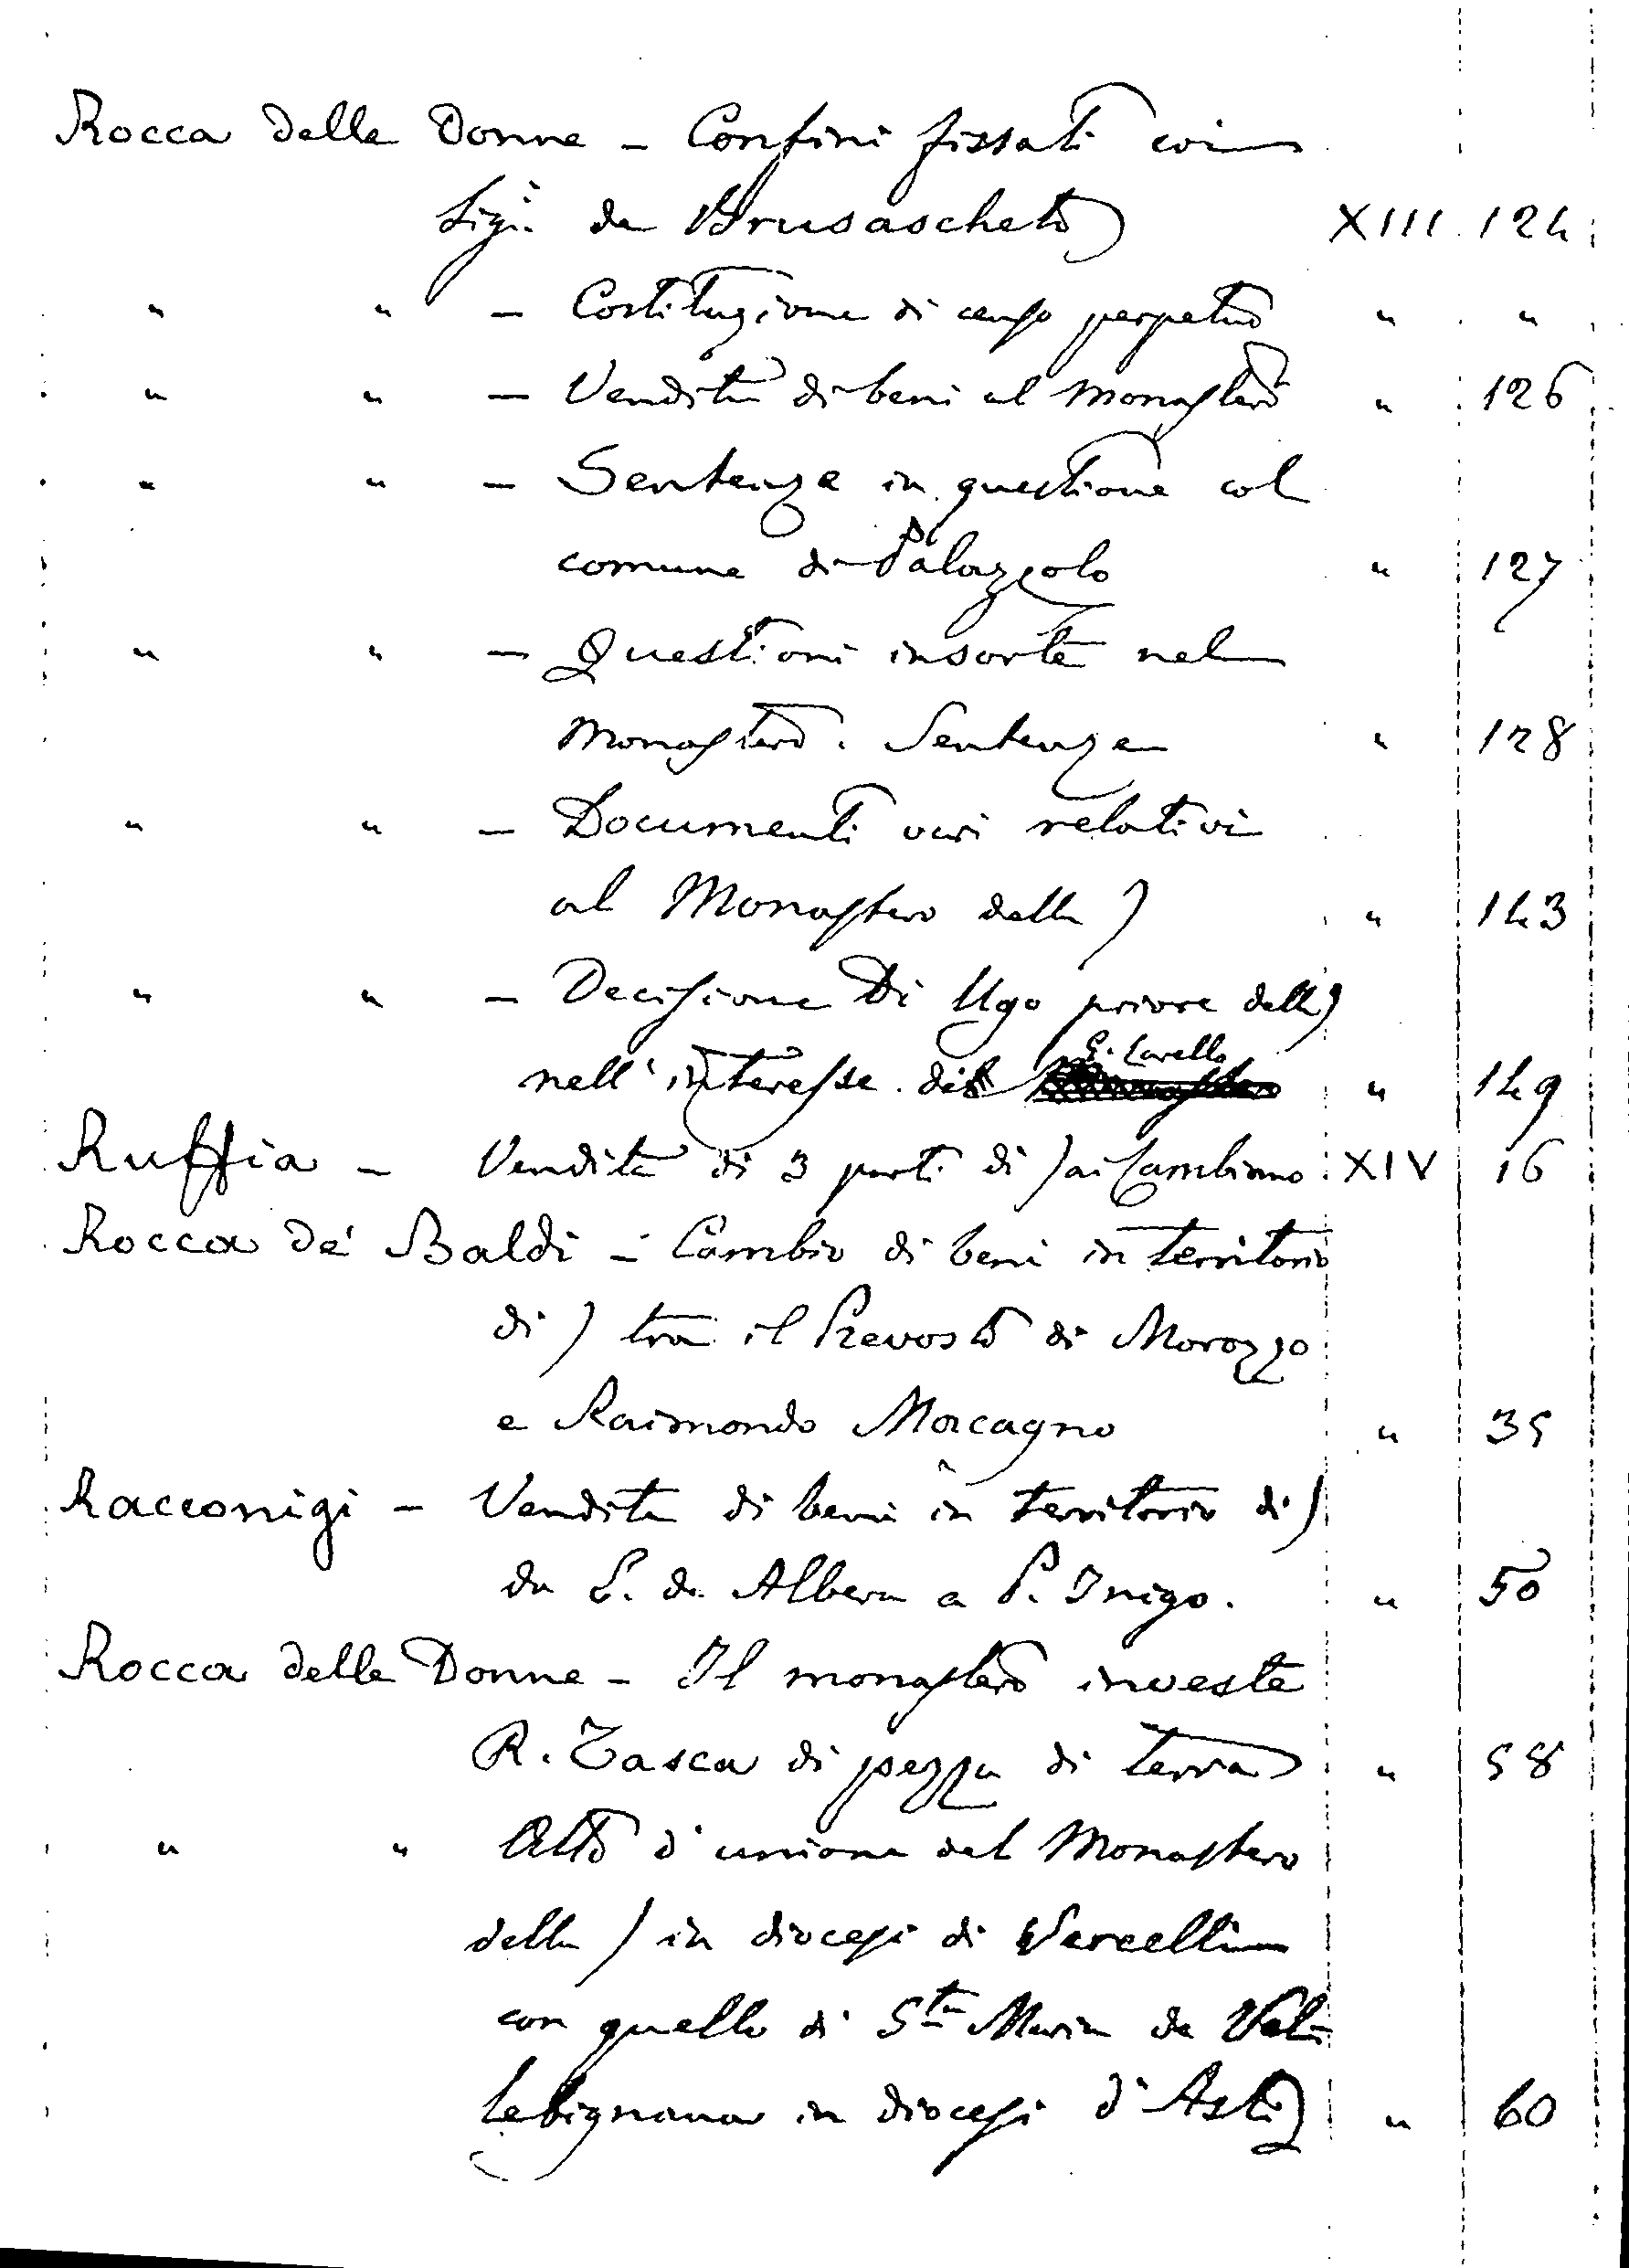 Rocca delle Donne - Confini fissati coi
Sigi. da Brusascheto XIII 124
" " - Costituzione di censo perpetuo " "
" " - Vendita di beni al Monastero " 126
" " - Sentenza in questione col
comune di Palazzolo " 127
" " - Questioni insorte nel
Monastero. Sentenza " 128
" " - Documenti vari relativi
al Monastero della ) " 143
" " - Decisione di Ugo priore della )
nell'interesse di G. Cavello " 149
Ruffia - Vendita di 3 parti di ) ai Cambiano XIV 16
Rocca de' Baldi - Cambio di beni in territorio
di ) tra il Prevosto di Morozzo
e Raimondo Macagno " 35
Racconigi - Vendita di beni in territorio di )
da P. da Albera a P. Inigo. " 50
Rocca delle Donne - Il monastero investe
R. Tasca di pezza di terra " 58
" " Atto d'unione del Monastero
della ) in diocesi di Vercelli
con quello di Sta Maria de Vall
Lebignana in diocesi d'Asti " 60